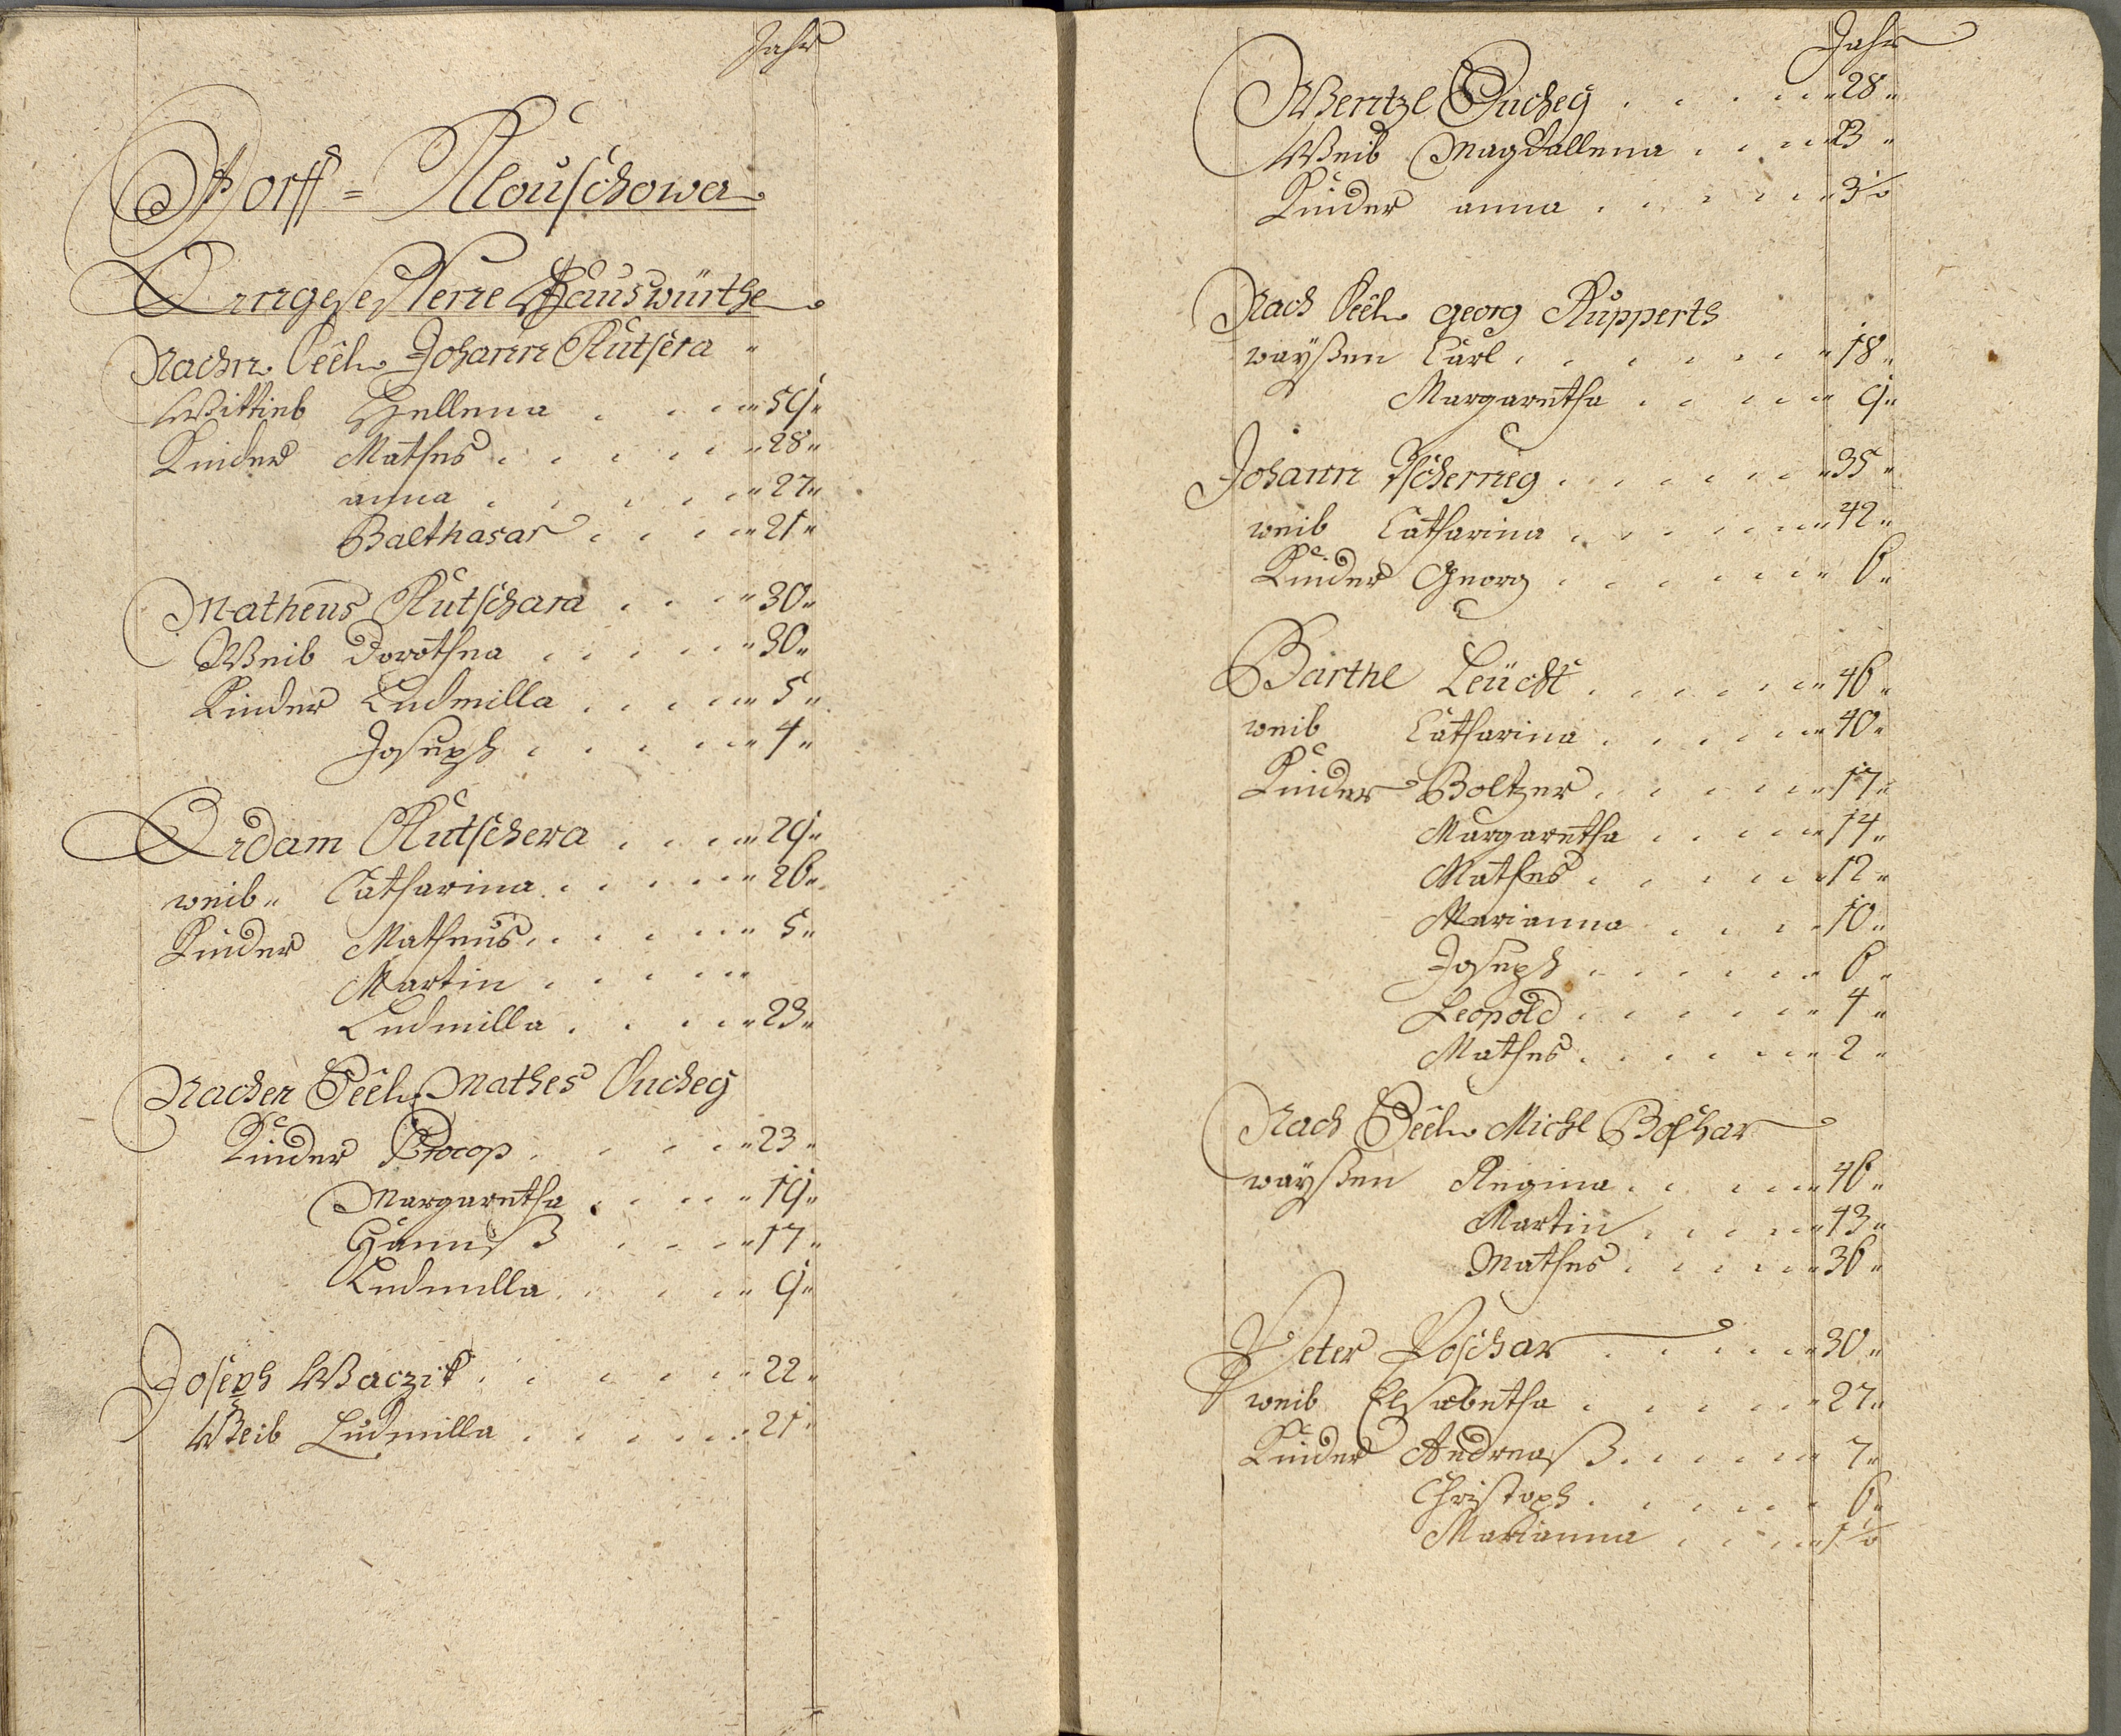 Jahr
Dorff = Klouschowa
Angeseßene Hauswürthe
Nachn Seel. Johann Kutsera "
Wittieb Hellena . . . "59"
Kinder Mathes . . . . "28"
anna . . . . "27"
Balthasar . . . "21"
Matheus Kutschara . . . "30"
Weib Dorothea . . . . "30"
Kinder Ludmilla . . . . "5"
Joseph . . . . "4"
Adam Kutschera . . . "29"
weib" Catharina . . . . "26"
Kinder Matheus . . . . "5"
Martin . . . . "
Ludmilla . . . . "23"
Nacher Seel. Mathes Ducheg
Kinder Procop . . . . "23"
Margaretha . . . "19"
Hannß . . . "17"
Ludmilla . . . . "9"
Joseph Waczik . . . . . "22"
Weib Ludmilla . . . . . "21"
Jahr
Wentzl Ducheg . . . . "28"
Weib Magdallena . . . "23"
Kinder anna . . . . . "3½
Nach Seel. Georg Rupperts
wayßen Carl . . . . . "18"
Margaretha . . . . "9"
Johann Tscherneg . . . . . "35"
weib Catharina . . . . . "42"
Kinder Georg . . . . . "6"
Barthl Leücht . . . . . "46"
weib Catharina . . . . . "40"
Kinder Boltzer . . . . . "17"
Margaretha . . . . "14"
Mathes . . . . . "12"
Marianna . . . . "10"
Joseph . . . . . "6"
Leopold . . . . . "4"
Mathes . . . . . "2"
Nach Seel. Michl Boschar
wayßen Regina . . . . "46"
Martin . . . . "43"
Mathes . . . . "36"
Peter Poschar . . . . . "30"
weib Elisabetha . . . . . "27"
Kinder Andreaß . . . . . "7"
Christoph . . . . . "6"
Marianna . . . . "1½